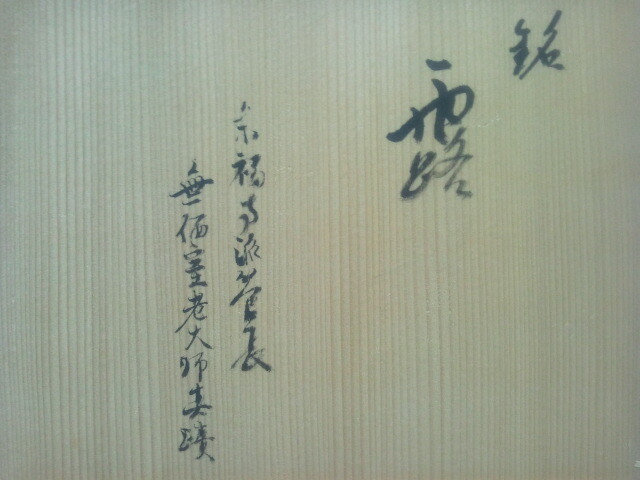 銘
露
東福寺派管長
無価室老大師真蹟